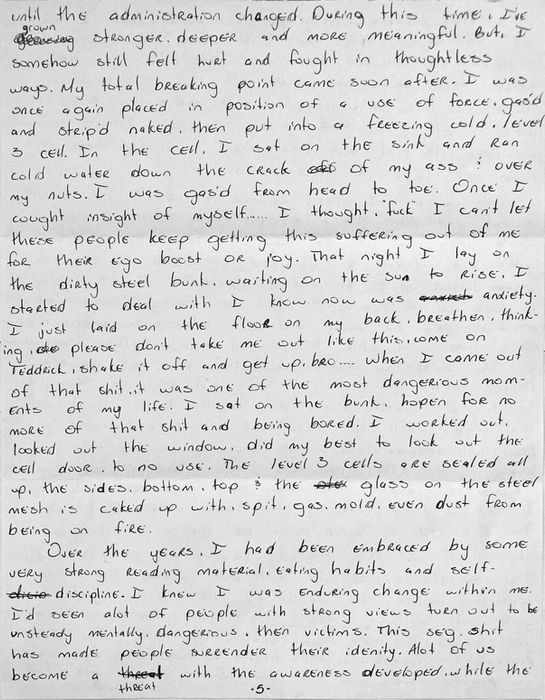 until the administration changed. During this time, I've
grown
stronger, deeper and more meaningful. But, I
somehow still felt hurt and fought in thoughtless
ways. My total breaking point came soon after. I was
once again placed in position of a use of force, gas'd
and strip'd naked, then put into a freezing cold, level
3 cell. In the cell, I sat on the sink and ran
cold water down the crack of my ass & over
my nuts. I was gas'd from head to toe. Once I
cought insight of myself..... I thought, "fuck" I can't let
these people keep getting this suffering out of me
for their ego boost or joy. That night I lay on
the dirty steel bunk, waiting on the sun to rise. I
started to deal with I know now was anxiety.
I just laid on the floor on my back, breathen, think-
ing, please don't take me out like this, come on
Teddrick, shake it off and get up, bro.... when I come out
of that shit.. it was one of the most dangerous mom-
ents of my life. I sat on the bunk, hopen for no
more of that shit and being bored. I worked out,
looked out the window, did my best to look out the
cell door, to no use. The level 3 cells are sealed all
up, the sides, bottom, top & the glass on the steel
mesh is caked up with, spit, gas, mold, even dust from
being on fire.
Over the years, I had been embraced by some
very strong reading material, eating habits and self-
discipline. I knew I was enduring change within me.
I'd seen alot of people with strong views turn out to be
unsteady mentally, dangerous, then victims. This seg. shit
has made people surrender their idenity. Alot of us
become a threat with the awareness developed, while the
threat
-5-